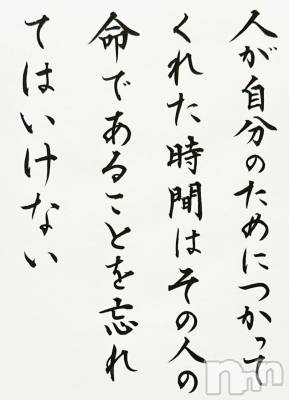 人が自分のためにつかって
くれた時間はその人の
命であることを忘れ
てはいけない